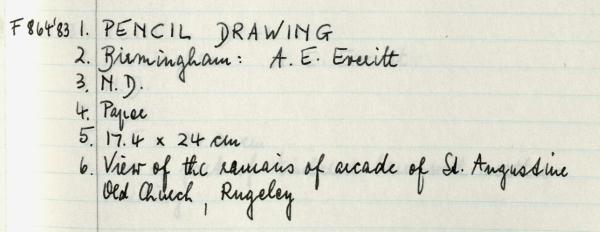 F864'83 1. PENCIL DRAWING
2. Birmingham: A. E. Everitt
3. N.D.
4. Paper
5. 17.4 x 24 cm
6. View of the remains of arcade of St. Augustine
Old Church, Rugeley